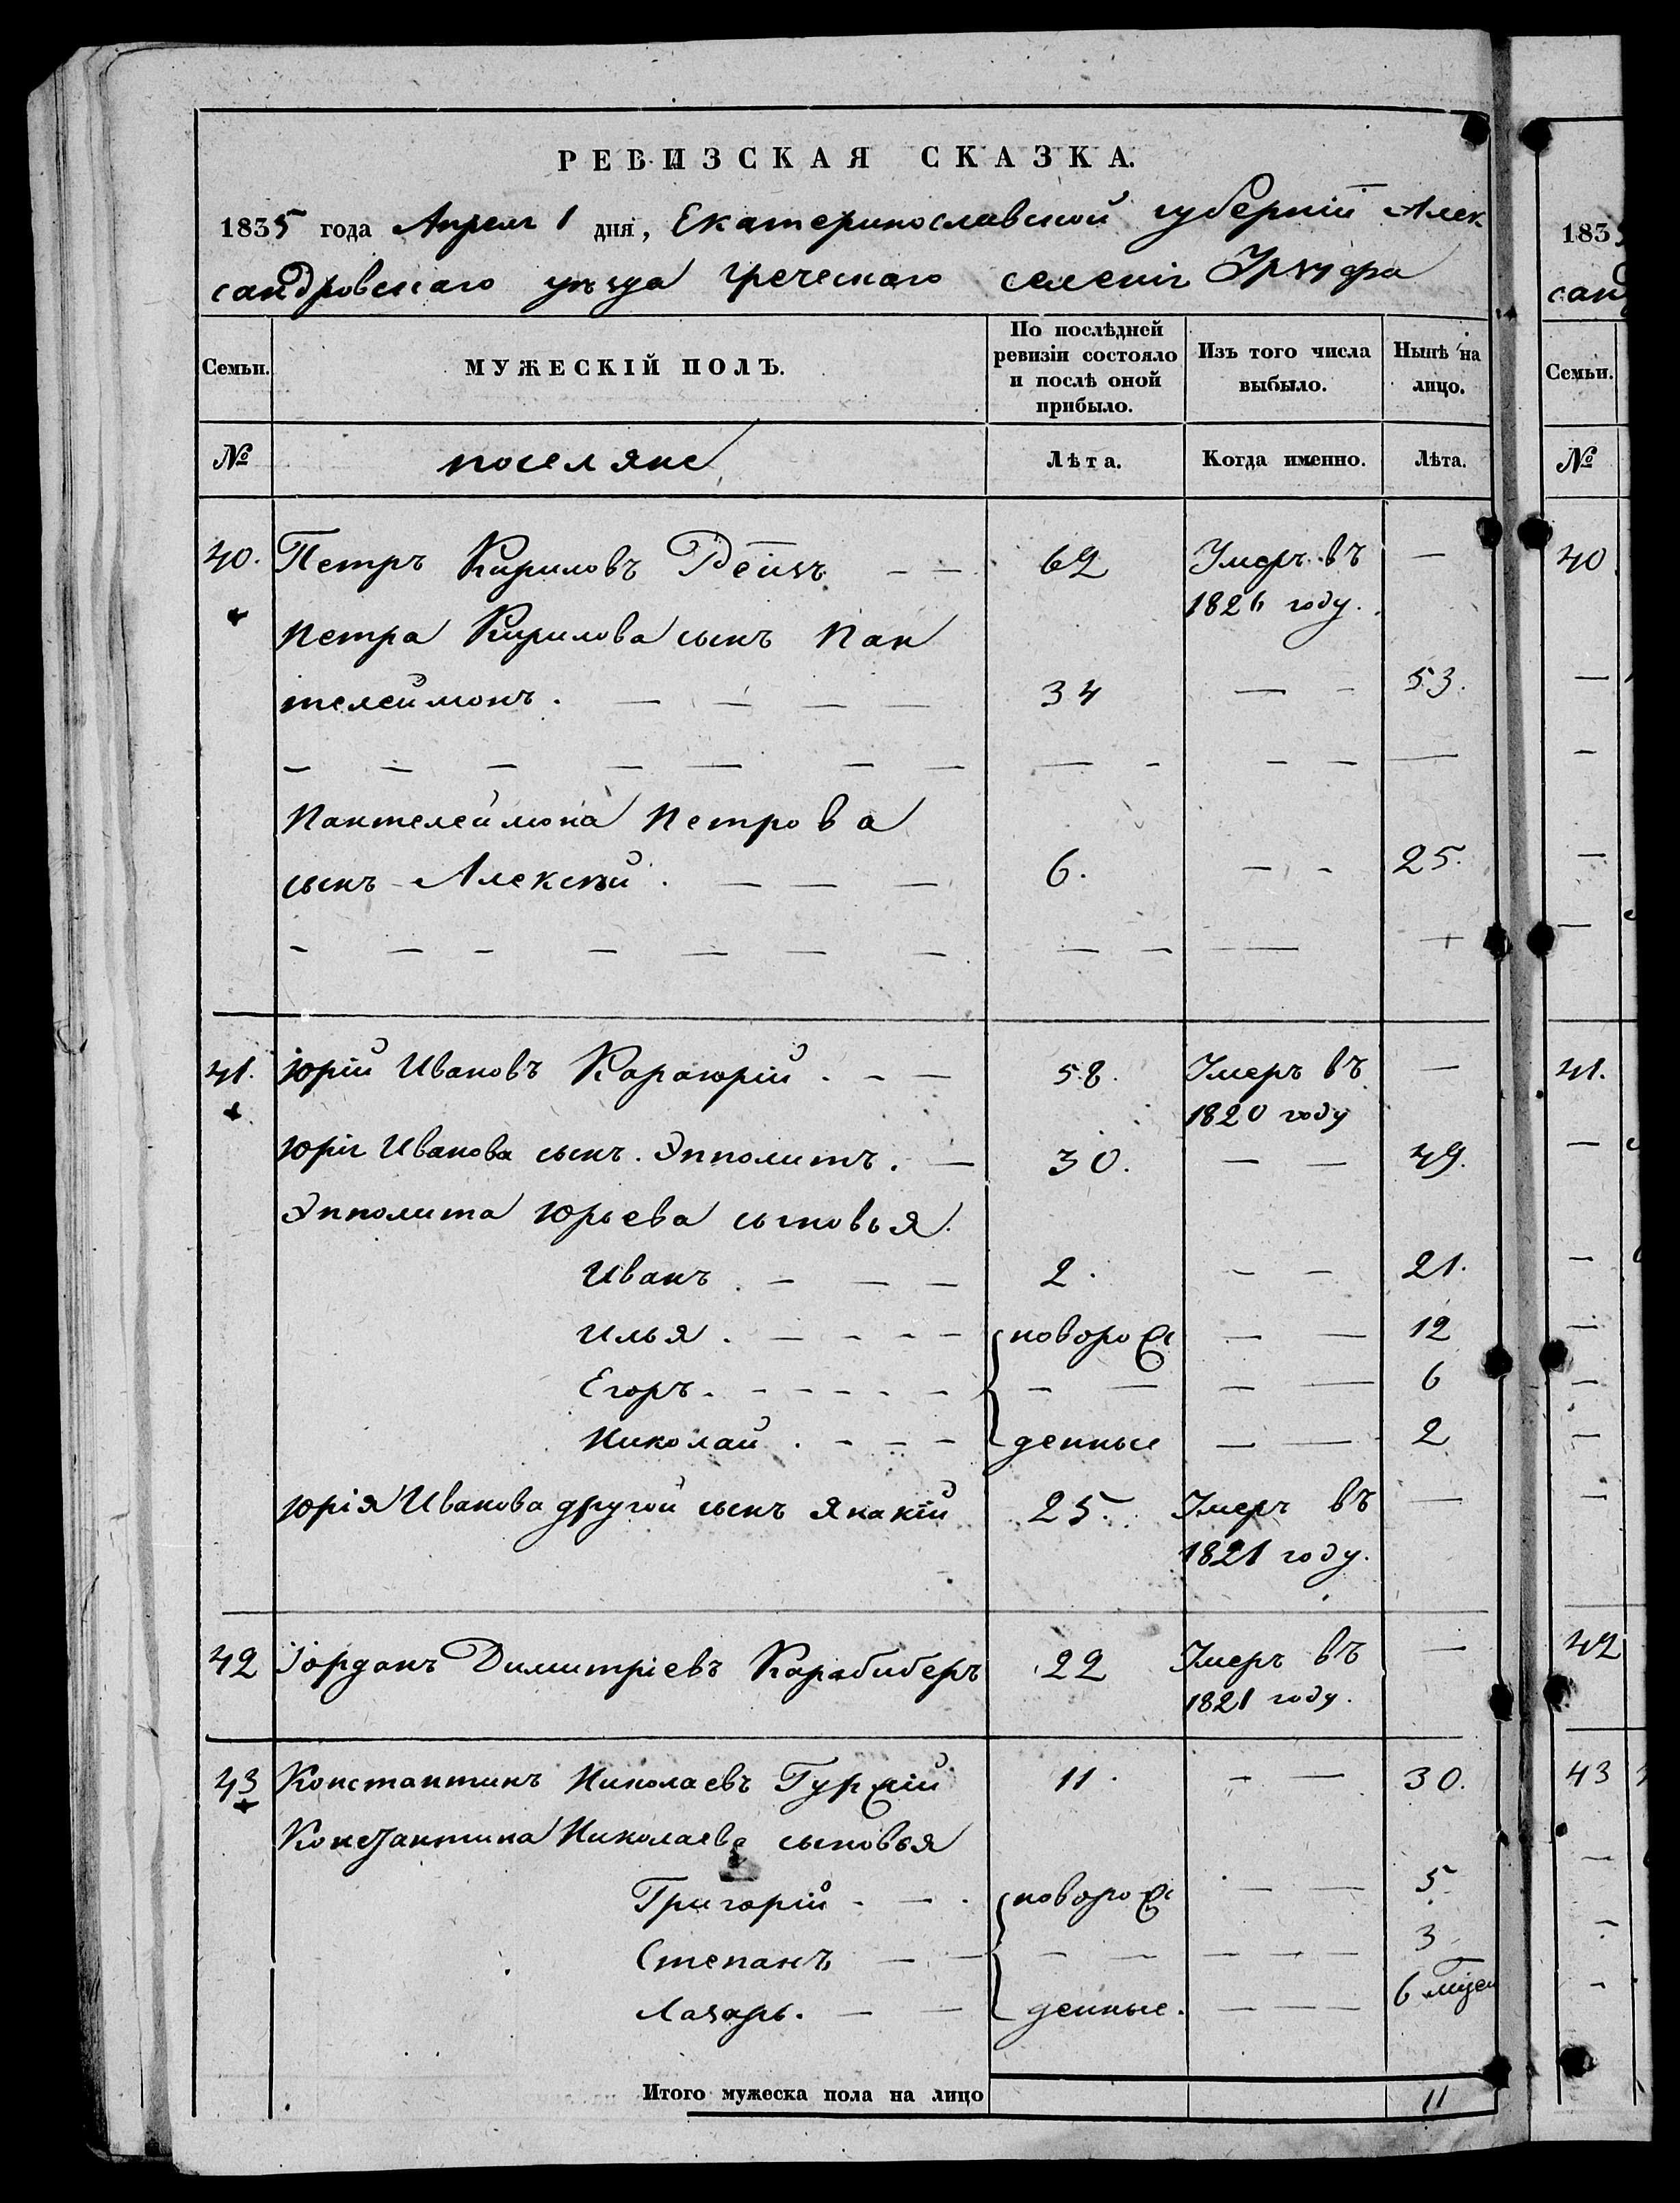 РЕВИЗСКАЯ СКАЗКА.
1835 года Апреля 1 дня, Екатеринославской губерніи Алек
сандровскаго уѣзда греческаго селенія Урзуфа
Семьи. МУЖЕСКІЙ ПОЛЪ. По послѣдней ревизіи состояло и послѣ оной прибыло. Изъ того числа выбыло. Нынѣ на лицо.
№ поселяне Лѣта. Когда именно. Лѣта.
40. Петръ Кириловъ — — 62 Умеръ въ —
1826 году.
Петра Кирилова сынъ Пан
телеймонъ. — — — — 34 — — 53.
— — — — — — — — — — — —
Пантелеймона Петрова
сынъ Алексѣй. — — — 6. — — 25.
— — — — — — — — — —
41. Юрій Ивановъ Караюрій. — — 58. Умеръ въ —
1820 году
Юрія Иванова сынъ. Эпполитъ. — 30. — — 49.
Эпполита Юрьева сыновья.
Иванъ. — — — 2. — — 21.
Илья. — — — — новорож — — 12
Егоръ. — — — — — — — — — 6
Николай. — — — денные — — 2
Юрія Иванова другой сынъ Янакій 25. Умеръ въ —
1821 году.
42 Іорданъ Димитріевъ Карабиберъ 22 Умеръ въ —
1821 году.
43 Константинъ Николаевъ Гуржій 11. — — 30.
Константина Николаева сыновья
Григорій — — новорож — — 5
Степанъ — — — — — — — 3
Лазарь. — — денные. — — — 6
Итого мужеска пола на лицо 11
183
сан
Семьи.
№
40
41.
42
43